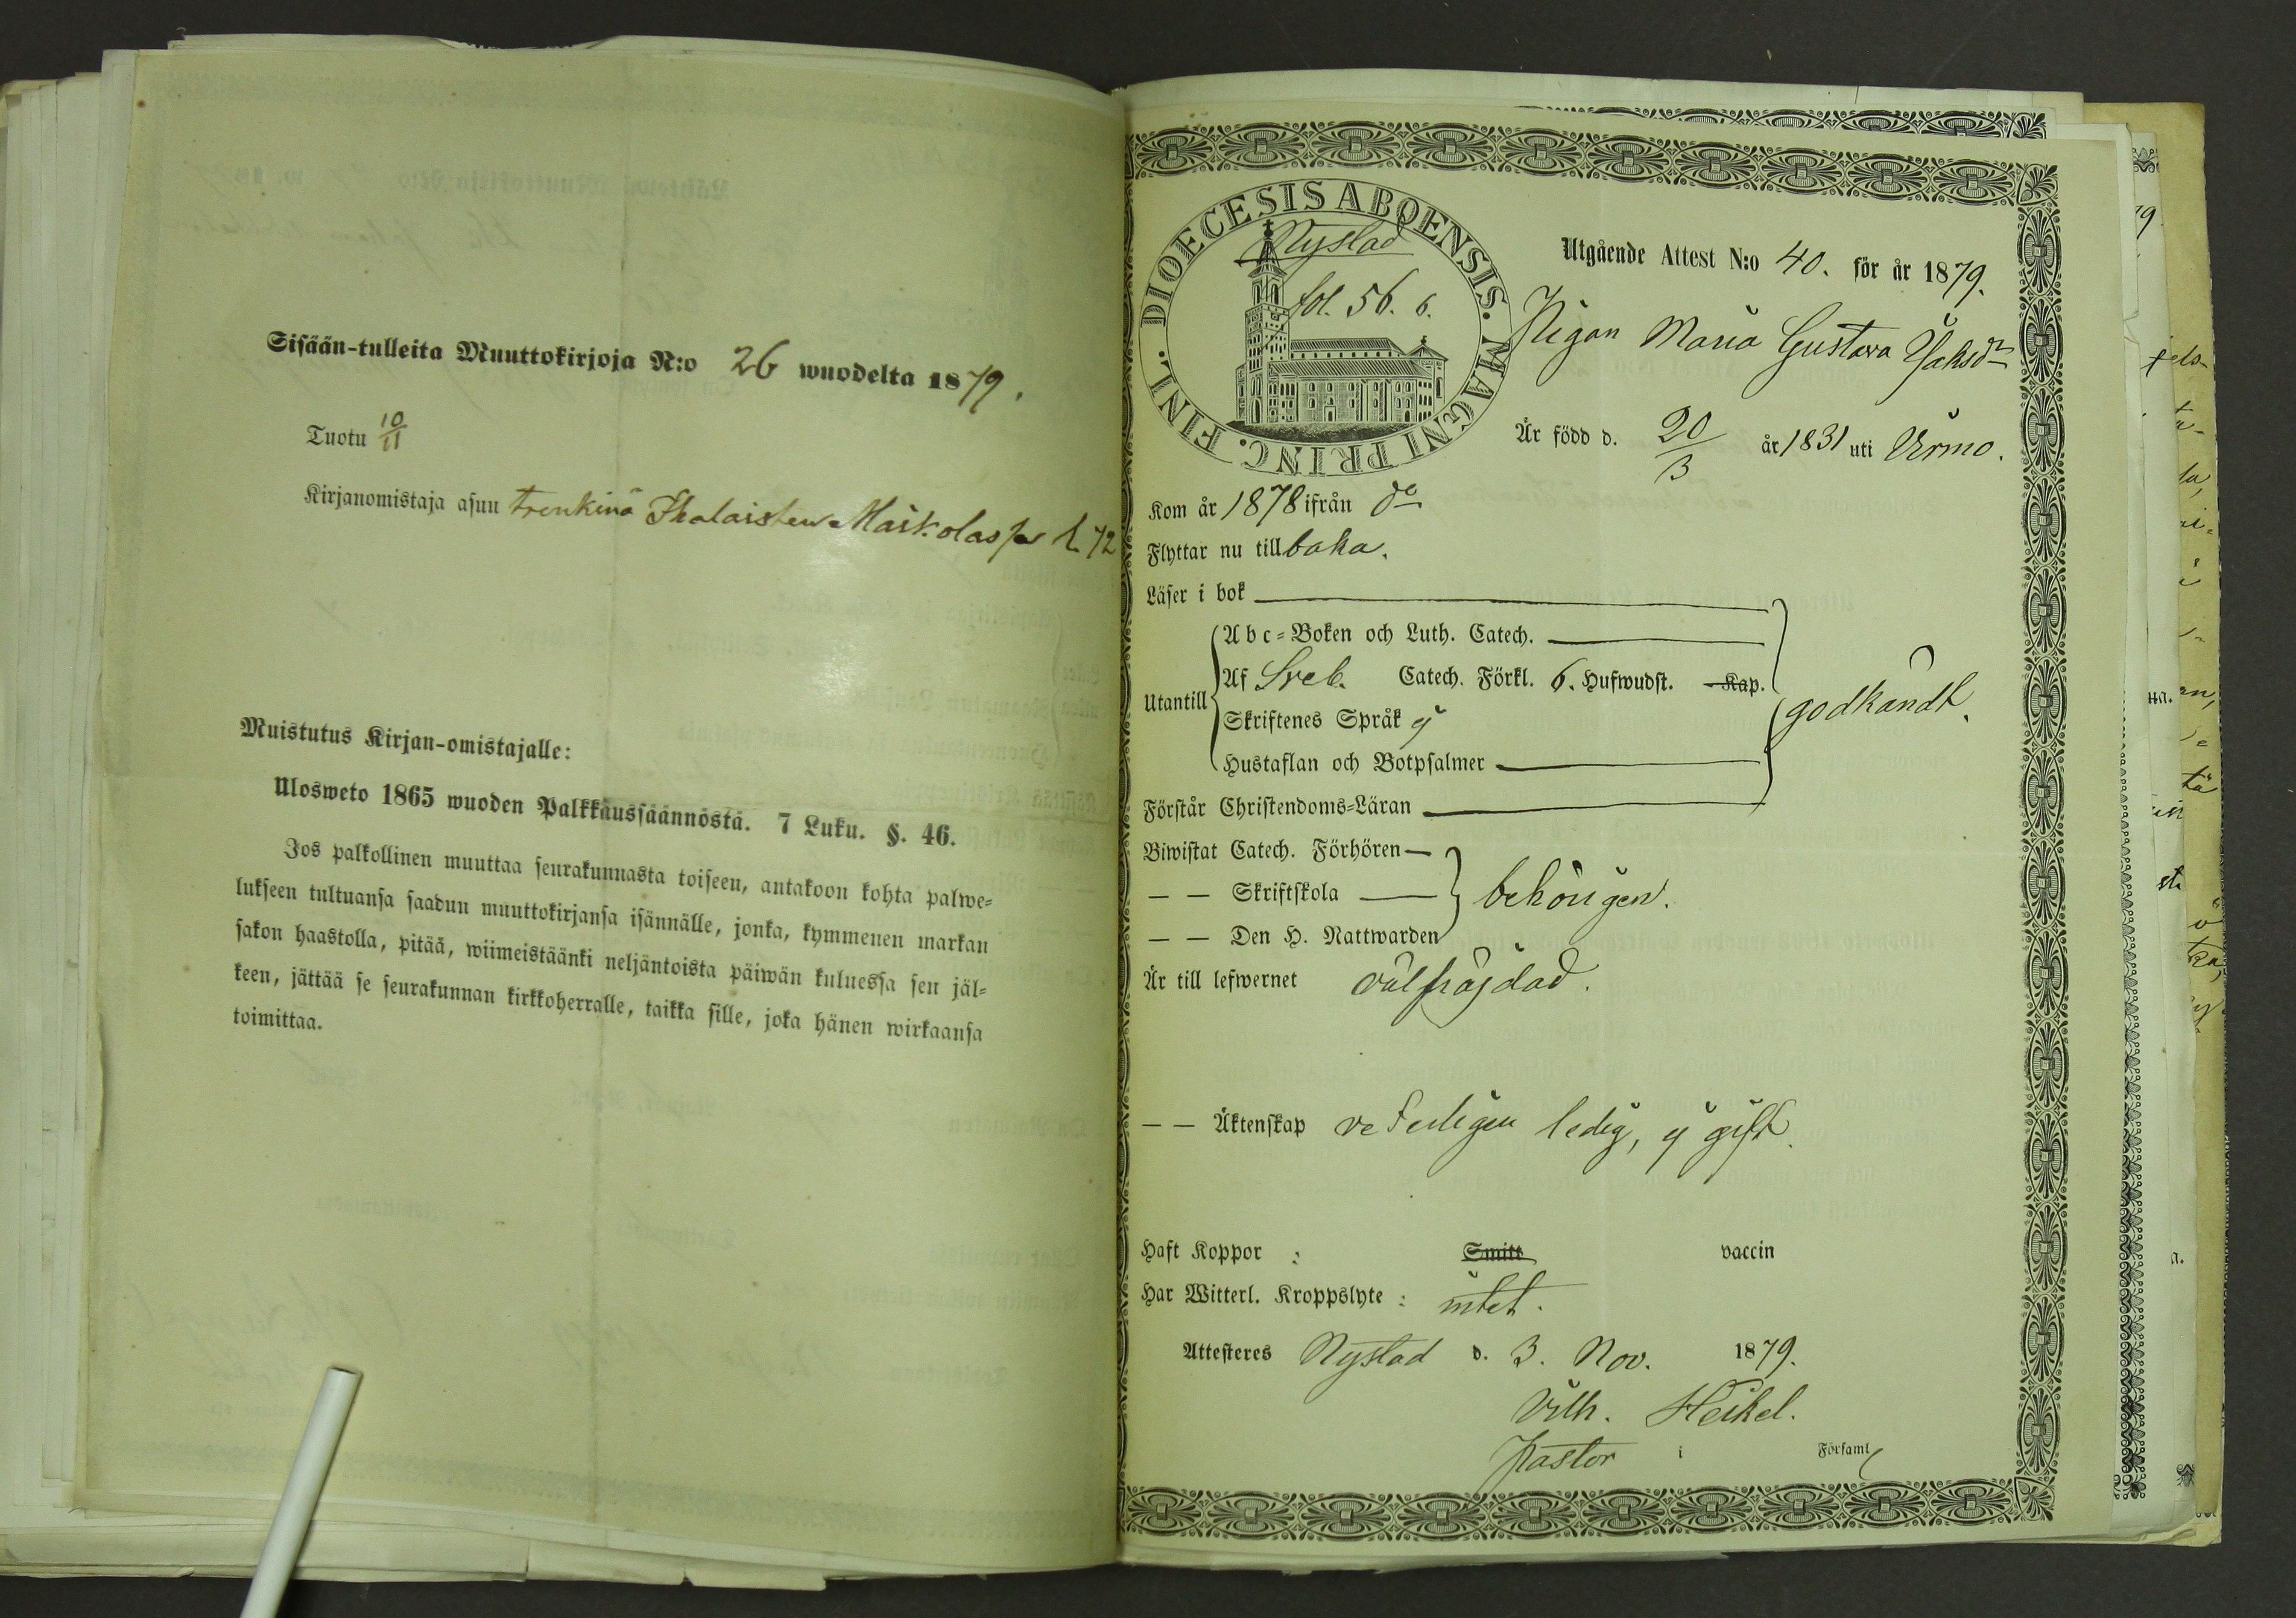 Sisään-tulleita Muuttokirjoja N:o 26 wuodelta 1879.
Tuotu 10/11
Kirjanomistaja asuu trenkinä Ihalaisten Maikolassa l. 72
Muistutus Kirjan-omistajalle:
Ulosweto 1865 wuoden Palkkaussäännöstä. 7 Luku. §. 46.
Jos palkollinen muuttaa seurakunnasta toiseen, antakoon kohta palwe=
lukseen tultuansa saadun muuttokirjansa isännälle, jonka, kymmenen markan
sakon haastolla, pitää, wiimeistäänki neljäntoista päiwän kuluessa sen jäl=
keen, jättää se seurakunnan kirkkoherralle, taikka sille, joka hänen wirkaansa
toimittaa.
DIOECESIS ABOENSIS. MAGNI PRINC. FINL.
Nystad
fol. 56. 6.
Utgående Attest N:o 40. för år 1879.
Pigan Maria Gustava Jaksdr
Är född d. 20/3 år 1831 uti Virmo.
Kom år 1878 ifrån do
Flyttar nu till baka.
Läser i bok
Utantill
Abc=Boken och Luth. Catech.
Af Sveb. Catech. Förkl. 6. Hufwudst. Kap.
Skriftenes Språk ej
Hustaflan och Botpsalmer
godkändt.
Förstår Christendoms=Läran
Biwistat Catech. Förhören
— — Skriftskola — behörigen.
— — Den H. Nattwarden
Är till lefwernet välfräjdad.
— — Äktenskap veterligen ledig, ej gift.
Haft Koppor : Smitt vaccin
Har Witterl. Kroppslyte : intet.
Attesteres Nystad d. 3. Nov. 1879.
Vilh. Heikel.
Pastor i Församl